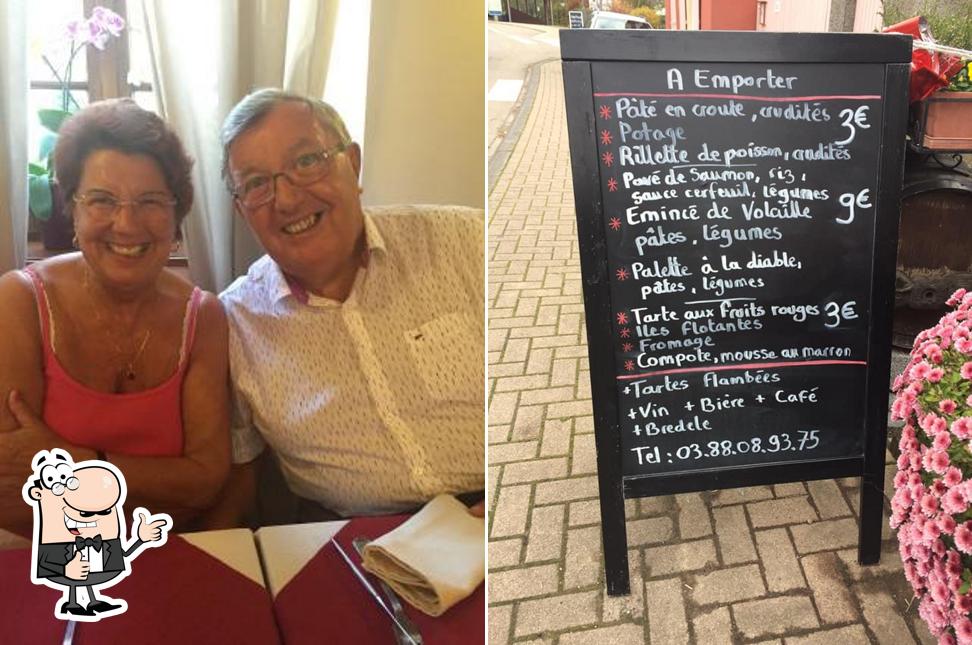 A Emporter
* Pâté en croute, crudités 3€
* Potage
* Rillette de poisson, crudités
* Pavé de Saumon, riz,
sauce cerfeuil, légumes 9€
* Emincé de Volaille
pâtes, légumes
* Palette à la diable,
pâtes, légumes
* Tarte aux fruits rouges 3€
* Iles flotantes
* Fromage
* Compote, mousse au marron
+Tartes flambées
+Vin + Bière + Café
+Bredele
Tel : 03.88.08.93.75